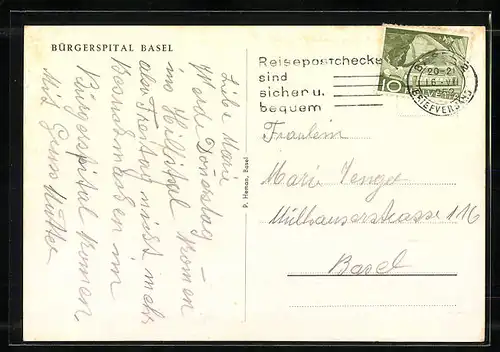 BÜRGERSPITAL BASEL
Liebe Marie
Werde Donestag –
im Hilfsital komen
aber Freitag nicht mehr
Bürgerspital komen
Mit Gruss Mutter
P. Heman, Basel
Reisepostchecke
sind
sicher u.
bequem
20-21
BRIEFVERSAND
10
Fräulein
Marie Senger
Mülhauserstrasse 116
Basel